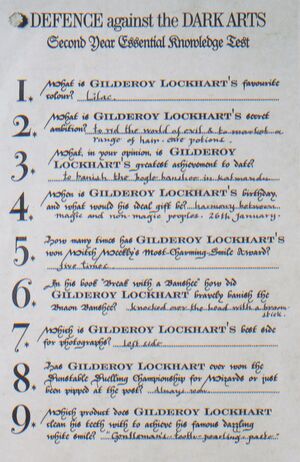 DEFENCE against the DARK ARTS
Second Year Essential Knowledge Test
1. What is GILDEROY LOCKHART'S favourite
colour? Lilac.
2. What is GILDEROY LOCKHART'S secret
ambition? to rid the world of evil & to market a
range of hair-care potions.
3. What, in your opinion, is GILDEROY
LOCKHART'S greatest achievement to date?
to banish the
4. When is GILDEROY LOCKHART'S birthday,
and what would his ideal gift be? harmony between
magic and non magic peoples. 26th January.
5. How many times has GILDEROY LOCKHART'S
won Witch Weekly's Most-Charming-Smile Award?
five times
6. In his book "Break with a Banshee" how did
GILDEROY LOCKHART bravely banish the
Banshee? Knocked over the head with a broom
stick.
7. Which is GILDEROY LOCKHART'S best side
for photographs? left side
8. Has GILDEROY LOCKHART ever won the
Dunstable Duelling Championship for Wizards or just
been pipped at the post? Always won
9. Which product does GILDEROY LOCKHART
clean his teeth with to achieve his famous dazzling
white smile? "Gentleman's tooth-pearling-paste"